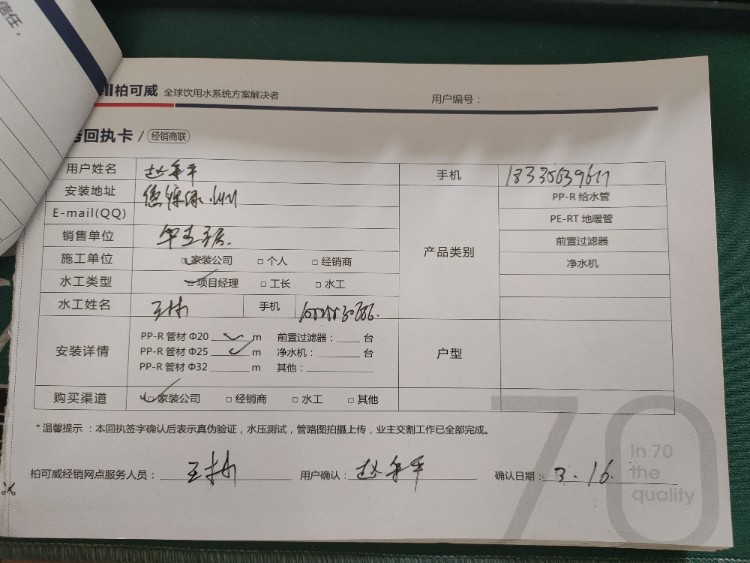 信任,
柏可威 全球饮用水系统方案解决者
用户编号：
回执卡 / 经销商联
用户姓名
手机
安装地址
PP-R 给水管
E-mail(QQ)
PE-RT 地暖管
销售单位
产品类别
前置过滤器
施工单位 □家装公司 □ 个人 □ 经销商
净水机
水工类型 □项目经理 □ 工长 □ 水工
水工姓名 王林 手机
安装详情
PP-R 管材 Φ20 m 前置过滤器： 台
PP-R 管材 Φ25 m 净水机： 台
PP-R 管材 Φ32 m 其他：
户型
购买渠道 □家装公司 □ 经销商 □ 水工 □ 其他
*温馨提示：本回执签字确认后表示真伪验证，水压测试，管路图拍摄上传，业主交割工作已全部完成。
柏可威经销网点服务人员： 王林 用户确认： 确认日期： 3.16.
70
In 70
the
quality